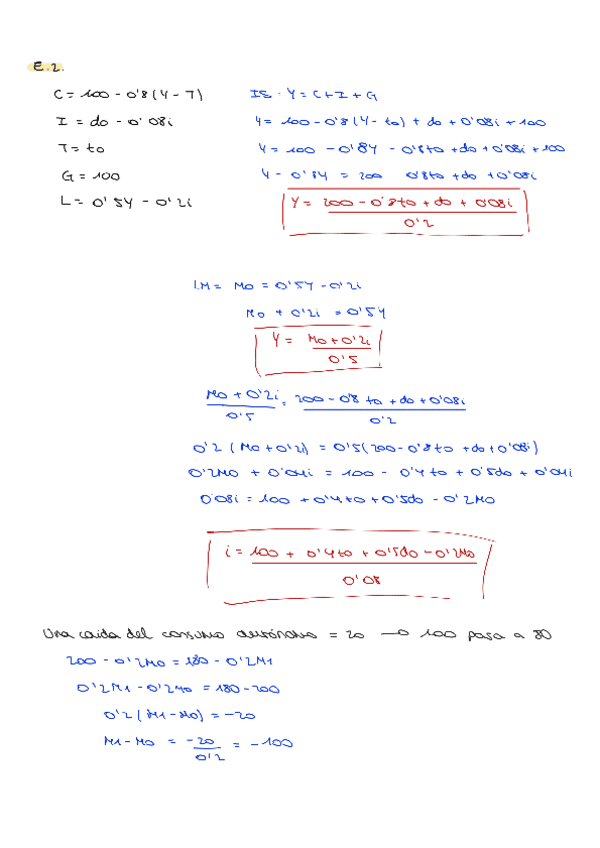 E.2.
C = 100 - 0'8 (Y - T)
I = do - 0'08i
T = to
G = 100
L = 0'5Y - 0'2i
IS: Y = C + I + G
Y = 100 - 0'8 (Y - to) + do + 0'08i + 100
Y = 100 - 0'8Y - 0'8to + do + 0'08i + 100
Y - 0'8Y = 200 0'8to + do + 0'08i
Y = 200 - 0'8to + do + 0'08i
0'2
LM = Mo = 0'5Y - 0'2i
Mo + 0'2i = 0'5Y
Y = Mo + 0'2i
0'5
Mo + 0'2i = 200 - 0'8 to + do + 0'08i
0'5 0'2
0'2 (Mo + 0'2i) = 0'5 (200 - 0'8to + do + 0'08i)
0'2Mo + 0'04i = 100 - 0'4to + 0'5do + 0'04i
0'08i = 100 + 0'4to + 0'5do - 0'2Mo
i = 100 + 0'4to + 0'5do - 0'2Mo
0'08
Una caida del consumo autónomo = 20 → 100 pasa a 80
200 - 0'2Mo = 180 - 0'2M1
0'2M1 - 0'2Mo = 180 - 200
0'2 (M1 - Mo) = -20
M1 - Mo = -20 = -100
0'2